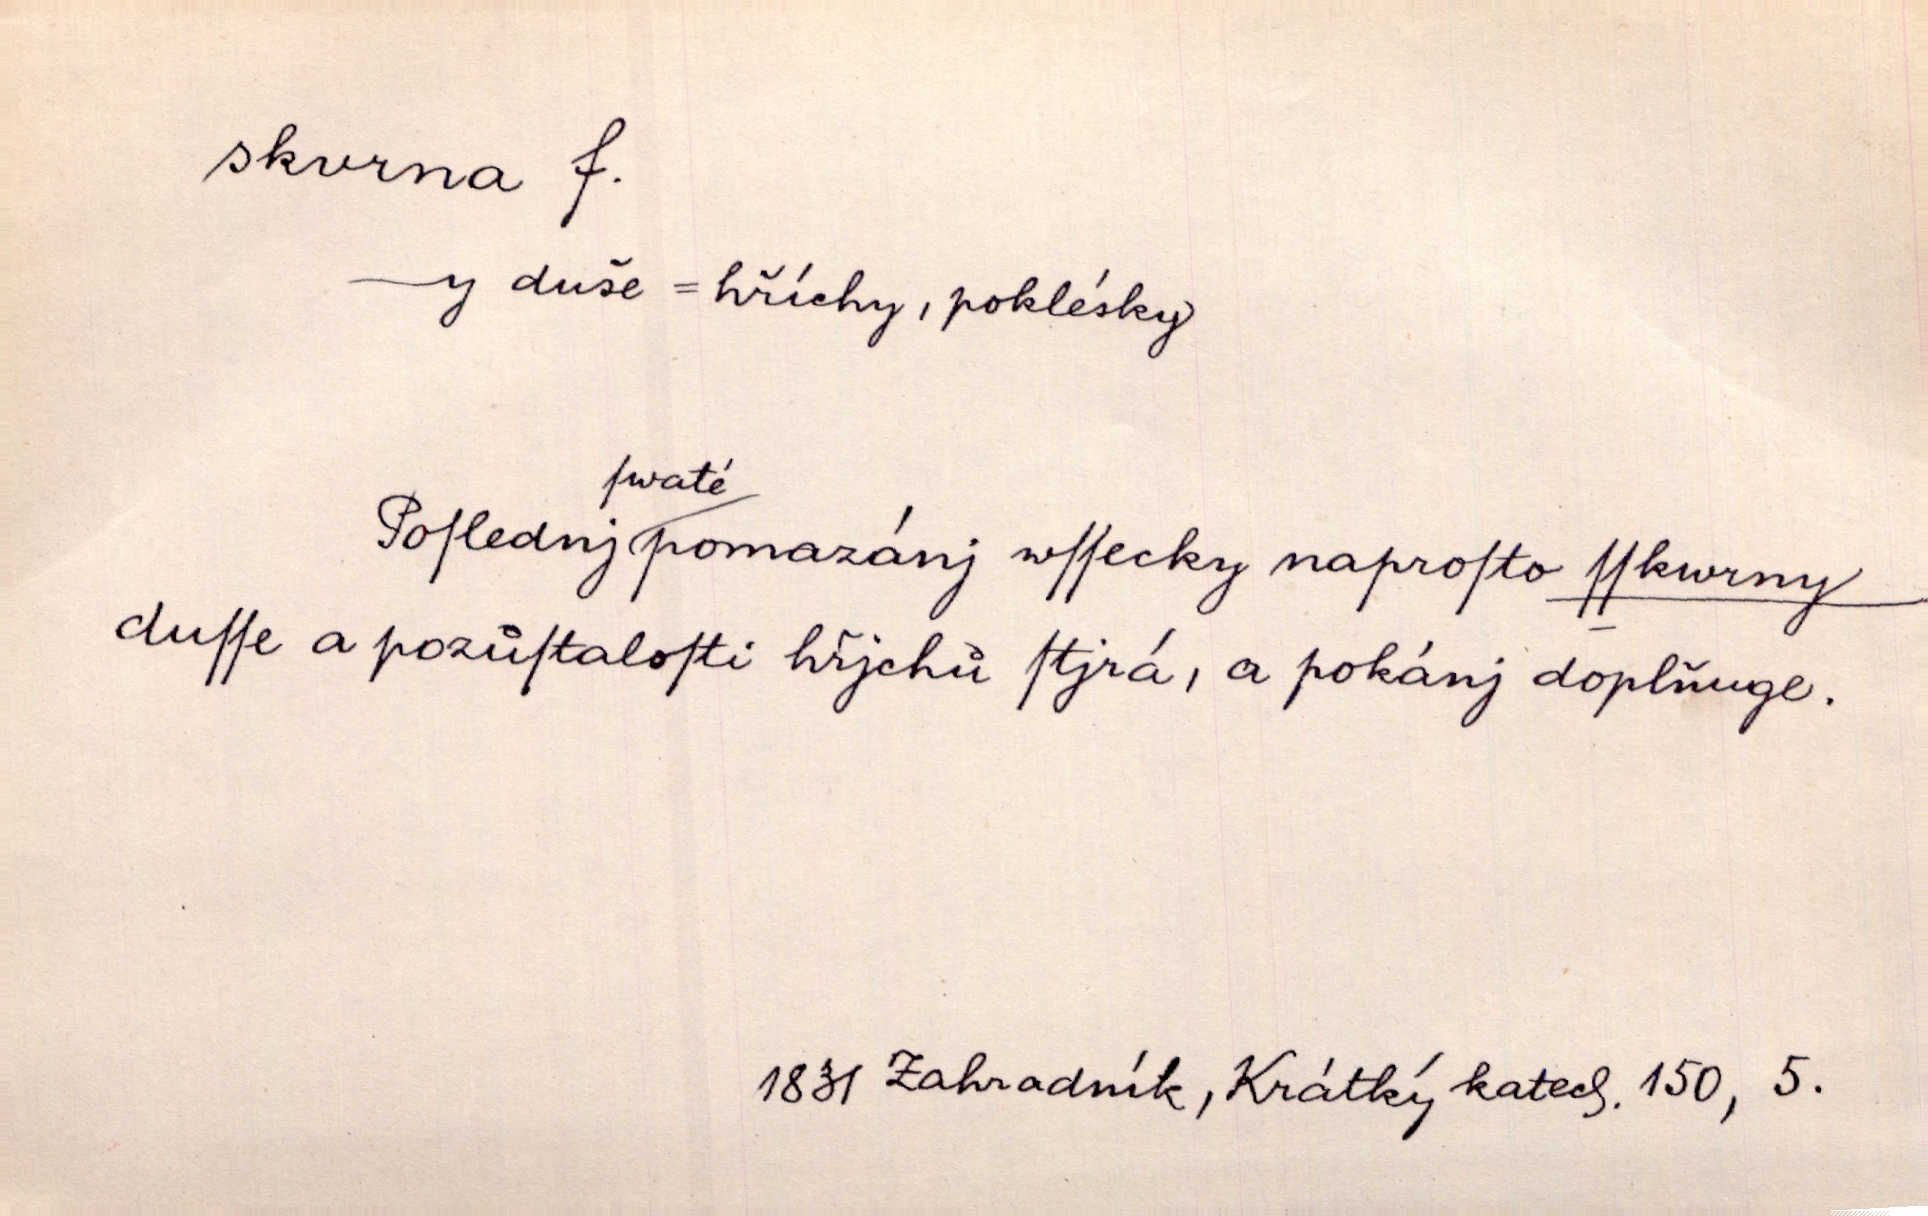 skvrna f.
—y duše = hříchy, poklésky
ſwaté
Poſlednj pomazánj wſſecky naproſto ſſkwrny
duſſe a pozůſtaloſti hřjchů ſtjrá, a pokánj doplňuge.
1831 Zahradník, Krátký katech. 150, 5.